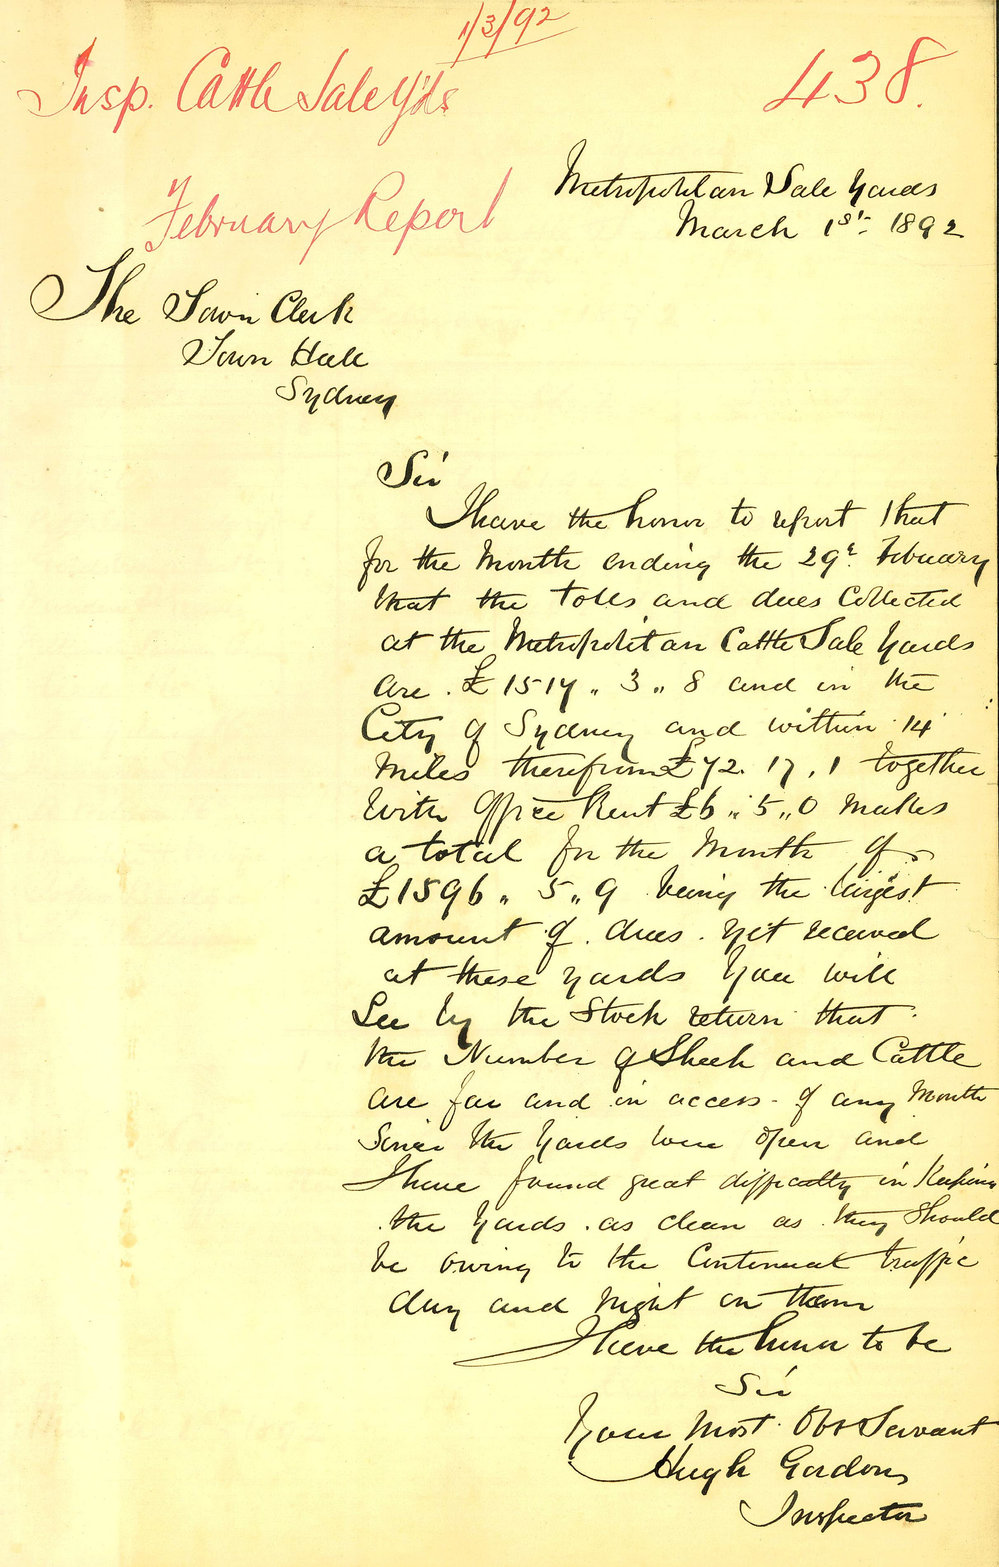 1/3/92
Insp. Cattle Sale Yds
438.
February Report
Metropolitan Sale Yards
March 1st 1892
The Town Clerk
Town Hall
Sydney
Sir
I have the honor to report that
for the Month ending the 29th February
that the tolls and dues Collected
at the Metropolitan Cattle Sale Yards
are . £1517 " 3 " 8 and in the
City of Sydney and within 14
Miles therefrom £72. 17 . 1 together
With Office Rent £6 " 5 " 0 makes
a total for the Month of
£1596 " 5 " 9 being the largest
amount of dues yet received
at these yards You will
See by the Stock return that
the Number of Sheep and Cattle
are far and in access of any Month
Since the Yards were open and
I have found great difficulty in Keeping
the Yards as clean as they Should
be owing to the Continual traffic
day and Night on them
I have the honor to be
Sir
Your Most Obt Servant
Hugh Gordon
Inspector